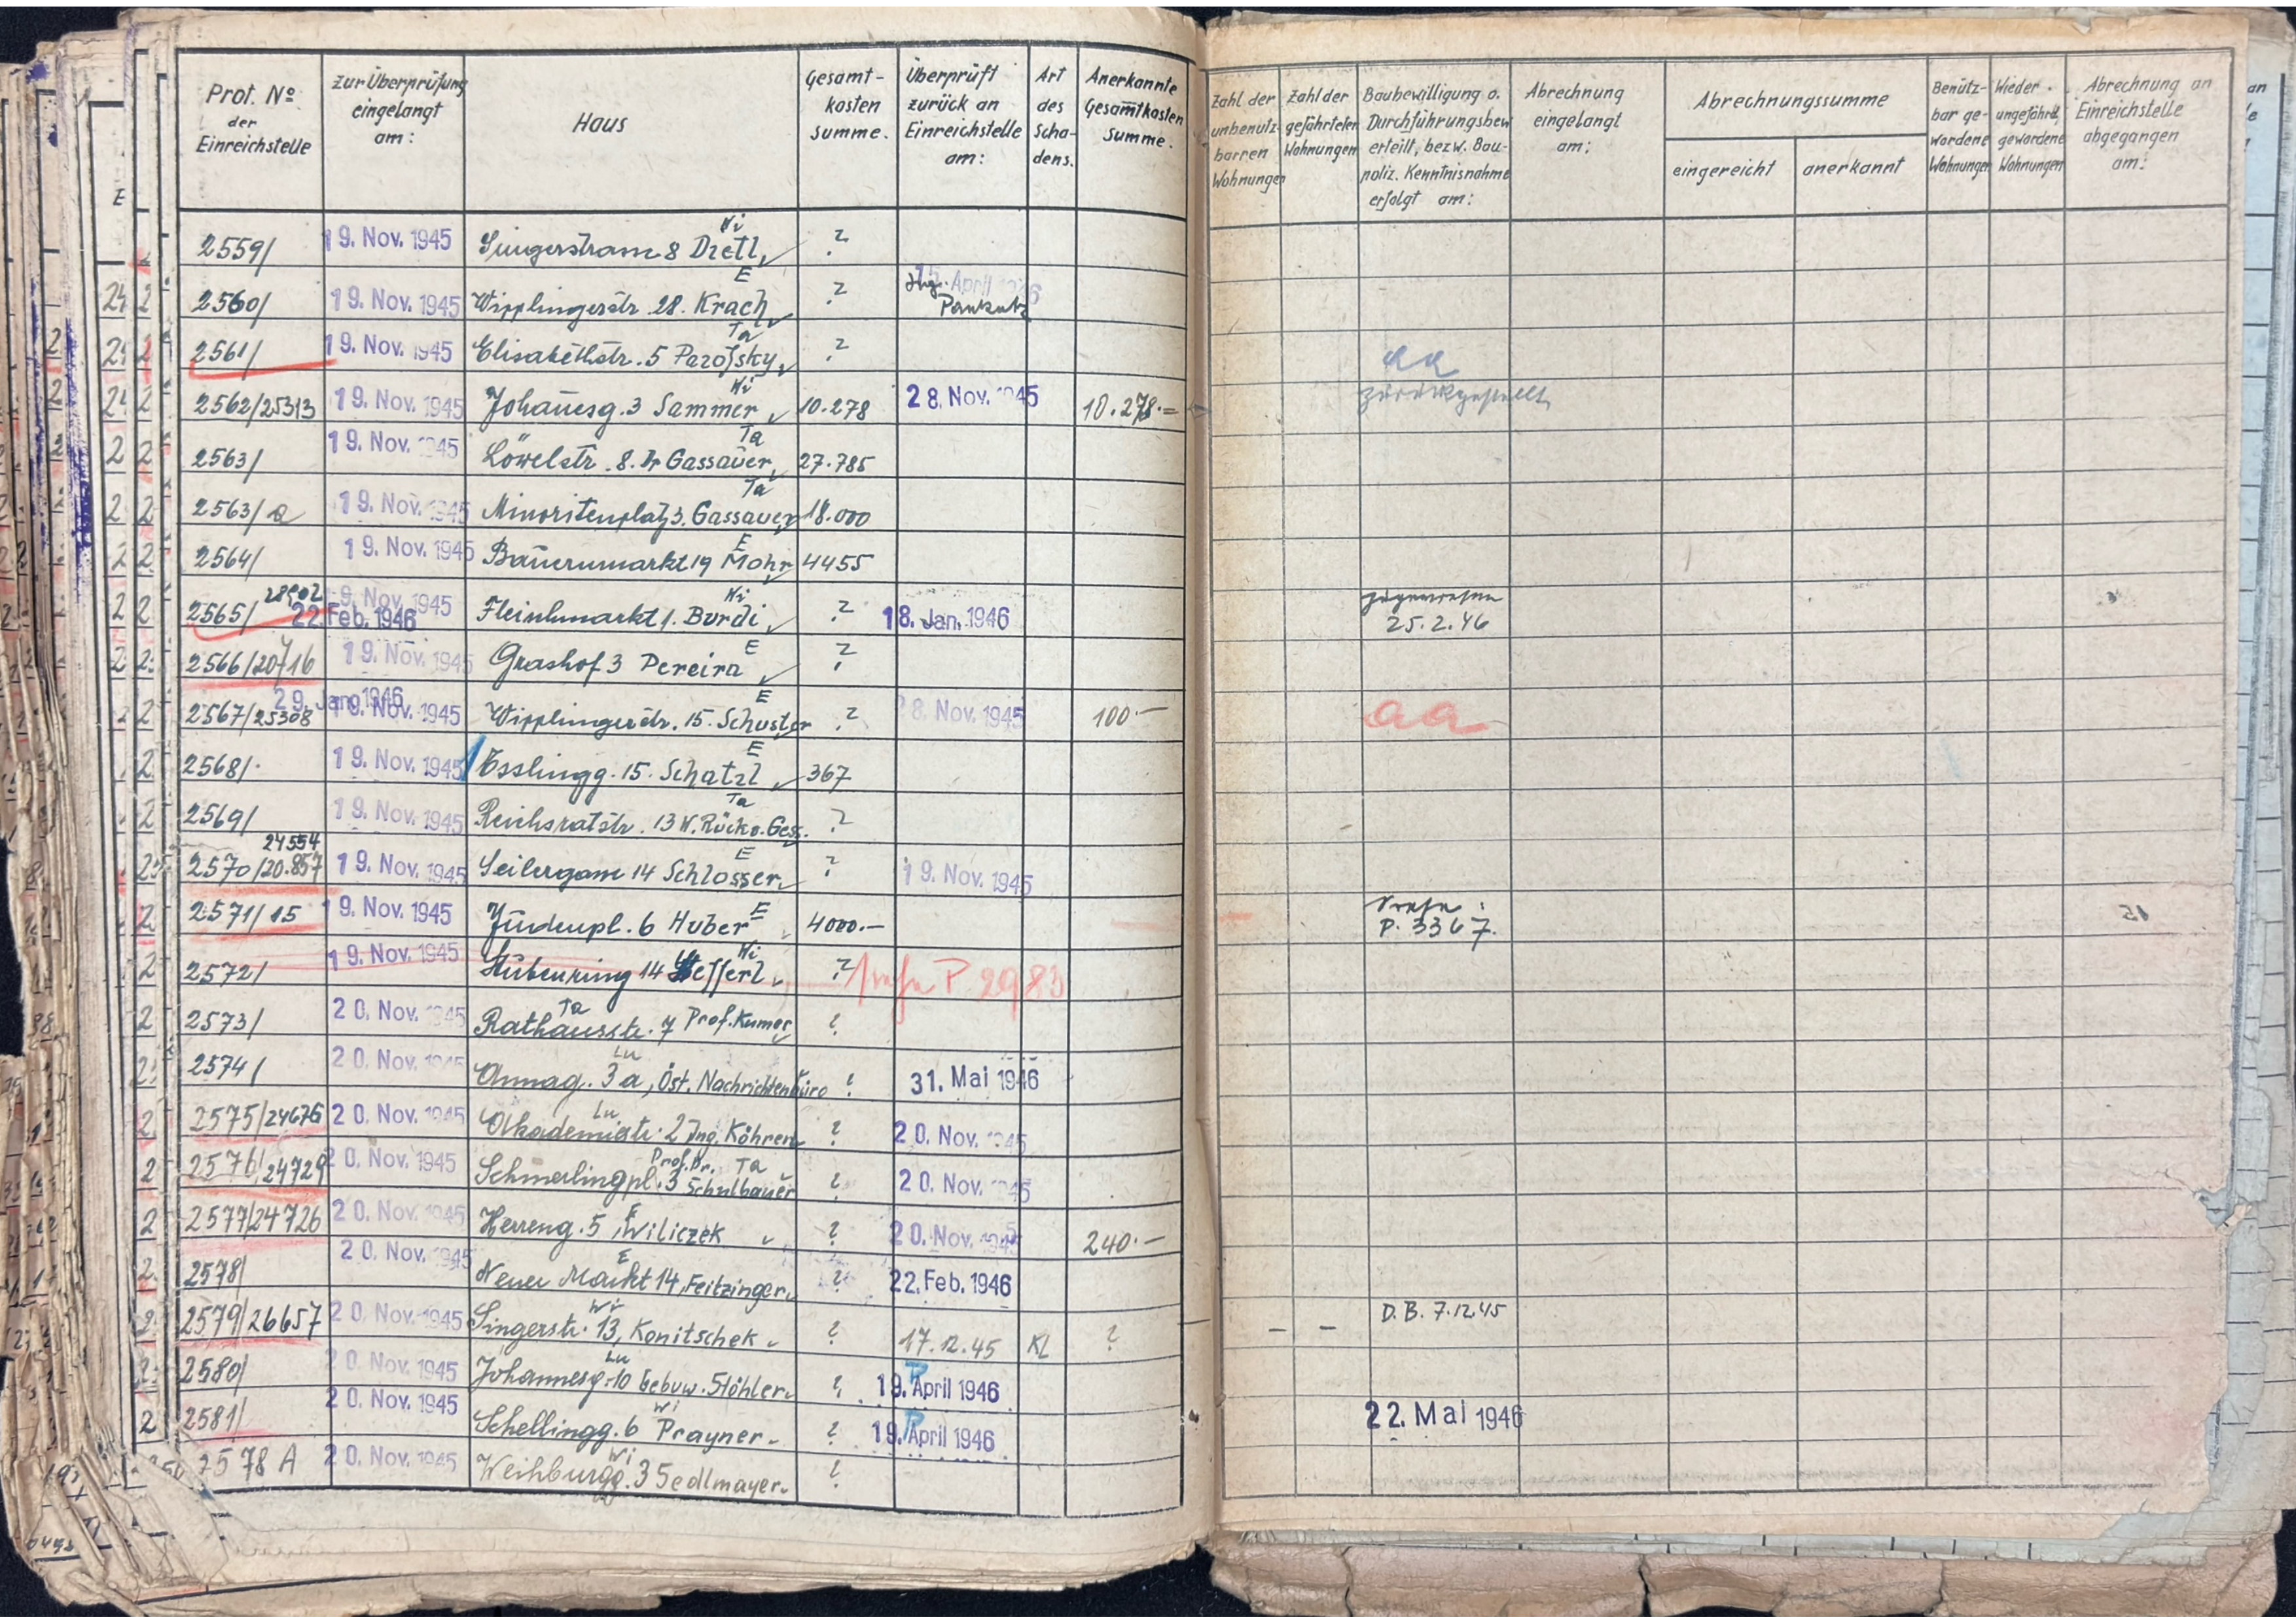 Prot. Nº der Einreichstelle
zur Überprüfung eingelangt am:
Haus
Gesamt-kosten summe.
Überprüft zurück an Einreichstelle am:
Art des Scha-dens.
Anerkannte Gesamtkosten Summe.
Zahl der unbenutz-barren Wohnungen
Zahl der gefährteten Wohnungen
Baubewilligung o. Durchführungsbew. erteilt, bezw. Bau-poliz. Kenntnisnahme erfolgt am:
Abrechnung eingelangt am:
Abrechnungssumme
eingereicht
anerkannt
Benütz-bar ge-wordene Wohnungen
Wieder ungefährd. gewordene Wohnungen
Abrechnung an Einreichstelle abgegangen am:
Wi
2559/ 19. Nov. 1945 Singerstrasse 8 Dietl ?
E
2560/ 19. Nov. 1945 Wipplingerstr. 28. Krach ? April
Ta
2561/ 19. Nov. 1945 Elisabethstr. 5 Parofsky ? aa
zurückgestellt
Wi
2562/25313 19. Nov. 1945 Johannesg. 3 Sammer 10.278 28. Nov. 1945 10.278.=
Ta
2563/ 19. Nov. 1945 Löwelstr. 8. Dr Gassauer 27.785
Ta
2563/a 19. Nov. 1945 Minoritenplatz 3. Gassauer 18.000
E
2564/ 19. Nov. 1945 Bauernmarkt 19 Mohr 4455
28902 Wi
2565/ 19. Nov. 1945 22. Feb. 1946 Fleischmarkt 1. Burdi ? 18. Jan. 1946 zugewiesen
25.2.46
E
2566/20716 19. Nov. 1945 Grashof 3 Pereira ?
29. Jan. 1946 E
2567/25308 19. Nov. 1945 Wipplingerstr. 15. Schuster ? 28. Nov. 1945 100.— aa
E
2568/. 19. Nov. 1945 Esslingg. 15. Schatzl 367
Ta
2569/ 19. Nov. 1945 Reichsratstr. 13 W. Rückv. Ges. ?
24554 E
2570/20.857 19. Nov. 1945 Seilergasse 14 Schlosser ? 19. Nov. 1945
E
2571/15 19. Nov. 1945 Judenpl. 6 Huber 4000.— siehe:
P. 3367.
Wi
2572/ 19. Nov. 1945 Stubenring 14 ? siehe P 2983
Ta
2573/ 20. Nov. 1945 Rathausstr. 7 Prof. Kumer ?
Lu
2574/ 20. Nov. 1945 Annag. 3a, Öst. Nachrichtenbüro ? 31. Mai 1946
Lu
2575/24676 20. Nov. 1945 Akademiestr. 2 Ing. Köhren ? 20. Nov. 1945
Prof. Dr. Ta
2576/24729 20. Nov. 1945 Schmerlingpl. 3 Schulbauer ? 20. Nov. 1945
E
2577/24726 20. Nov. 1945 Herreng. 5, Wiliczek ? 20. Nov. 1945 240.—
E
2578/ 20. Nov. 1945 Neuer Markt 14, Feitzinger ? 22. Feb. 1946
Wi
2579/26657 20. Nov. 1945 Singerstr. 13, Konitschek ? 17.12.45 KL ? – – D.B. 7.12.45
Lu
2580/ 20. Nov. 1945 Johannesg. 10 Gebuw. Stöhler ? 19. April 1946
Wi
2581/ 20. Nov. 1945 Schellingg. 6 Prayner ? 19. April 1946 22. Mai 1946
Wi
2578 A 20. Nov. 1945 Weihburgg. 3 Sedlmayer ?